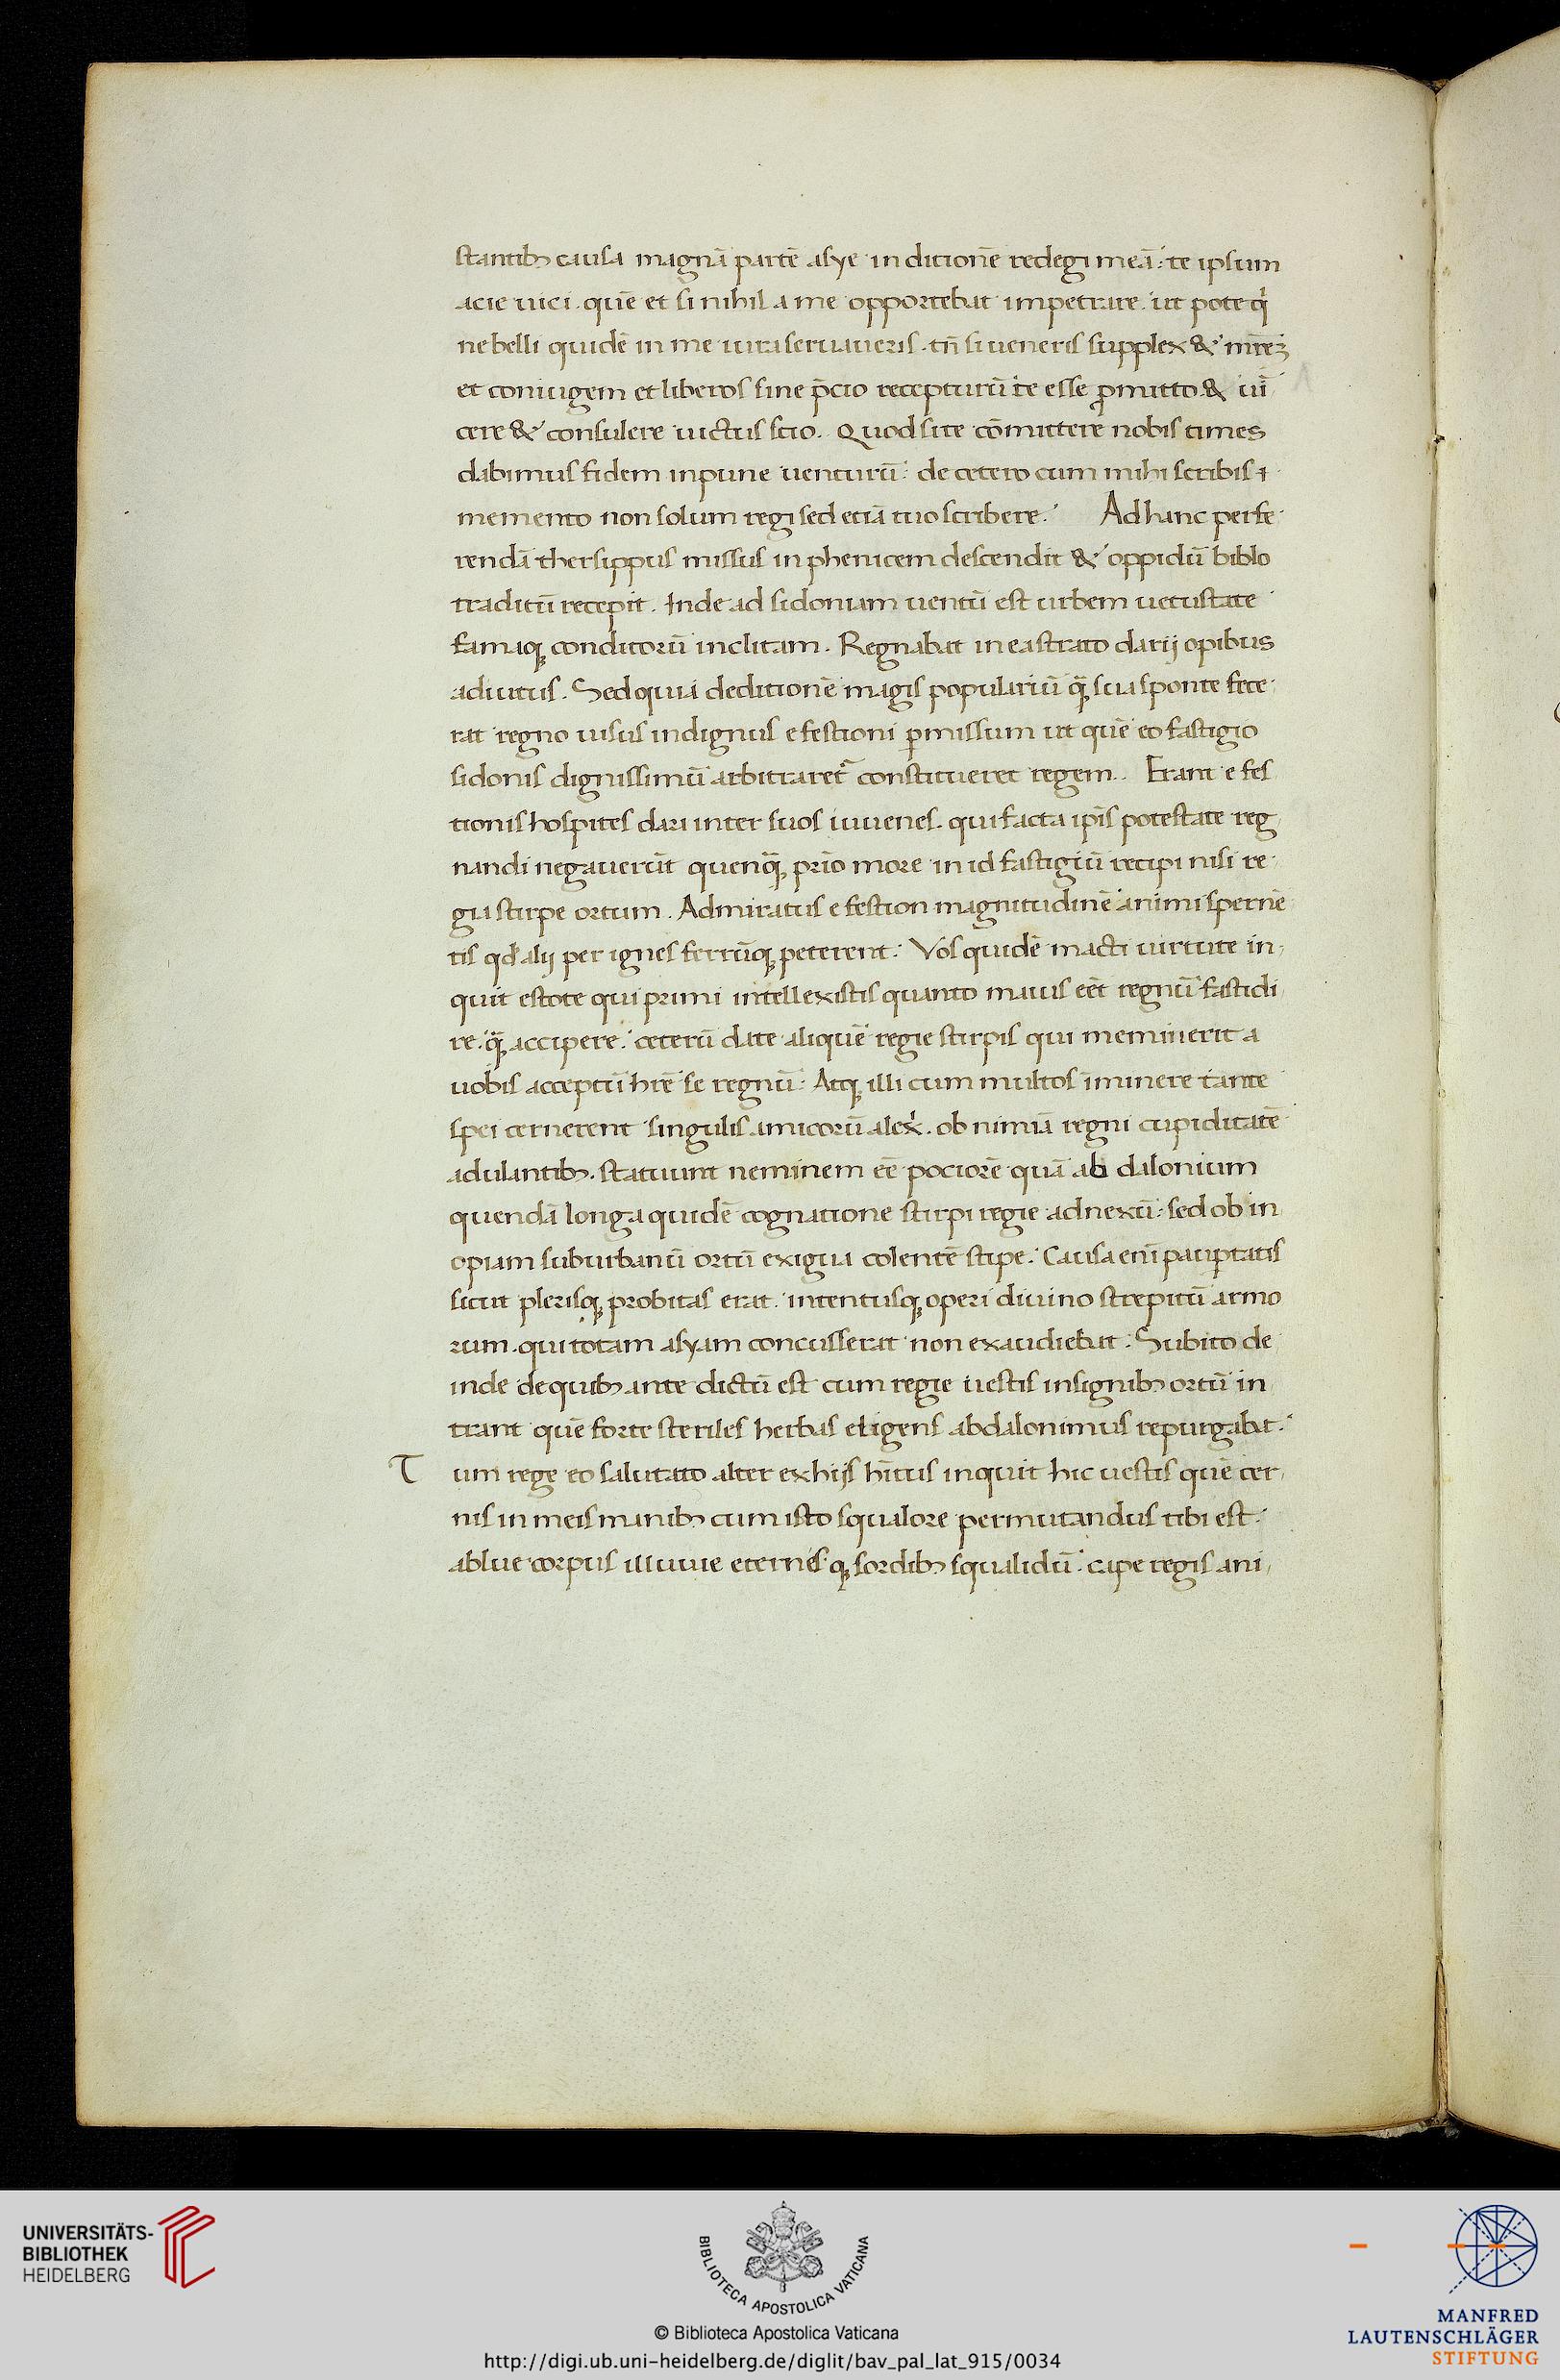 stantibꝫ causa magnā partē asye in ditionē redegi meā: te ipsum
acie uici. quē et si nihil a me opportebat impetrare. ut pote qͥ
ne belli quidē in me iura seruaueris. tn̄ si ueneris supplex & mr̄eꝫ
et coniugem et liberos sine p̄cio recepturū te esse ꝓmitto. & uī
cere & consulere uictus scio. Quod si te cōmittere nobis times
dabimus fidem inpune uenturū: de cetero cum mihi scribis ⁊
memento non solum regi sed etiā tuo scribere. Ad hanc perfe
rendā thersippus missus in phenicem descendit & oppidū biblo
traditū recepit. Inde ad sidonium uentū est urbem uetustate
famaqꝫ conditorū inclitam. Regnabat in ea strato darij opibus
adiutus. Sed quia deditionē magis popularium qꝫ̄ sua sponte fece
rat regno uisus indignus efestioni ꝑmissum ut quē eo fastigio
sidonis dignissimū arbitraret᷑ constitueret regem. Erant efes
tionis hospites dari inter suos iuuenes. qui facta ip̄is potestate reg
nandi negauerūt quenqꝫ̄ prīo more in id fastigiū recipi nisi re
gia stirpe ortum. Admiratus efestion magnitudinē animi spernē
tis qd̄ alij per ignes ferrūqꝫ peterent: Vos quidē macti uirtute in
quit estote qui primi intellexistis quanto maius eēt regnū fastidi
re. qꝫ̄ accipere. ceterū date aliquē regie stirpis qui meminerit a
uobis acceptū hr̄e se regnū: Atqꝫ illi cum multos īminere tante
spei cernerent singulis amicorū alex̓. ob nimiā regni cupiditatē
adulantibꝫ. statuunt neminem eē pociorē quā ab dalonium
quendā longa quidē cognatione stirpi regie adnexū: sed ob in
opiam suburbanū ortū exigua colentē stipe. Causa enī pauꝑtatis
sicut plerisqꝫ probitas erat. intentusqꝫ operi diuino strepitū armo
rum. qui totam asyam concusserat non exaudiebat: Subito de
inde de quibꝫ ante dictū est cum regie uestis insignibꝫ ortū in
trant quē forte steriles herbas eligens abdalonimus repurgabat.
Tum rege eo salutato alter ex hijs hītus inquit hic uestis quē cer
nis in meis manibꝫ cum isto squalore permutandus tibi est.
ablue corpus illuuie eternis qꝫ sordibꝫ squalidū. cape regis ani
UNIVERSITÄTS-
BIBLIOTHEK
HEIDELBERG
BIBLIOTECA APOSTOLICA VATICANA
© Biblioteca Apostolica Vaticana
http://digi.ub.uni-heidelberg.de/diglit/bav_pal_lat_915/0034
MANFRED
LAUTENSCHLÄGER
STIFTUNG